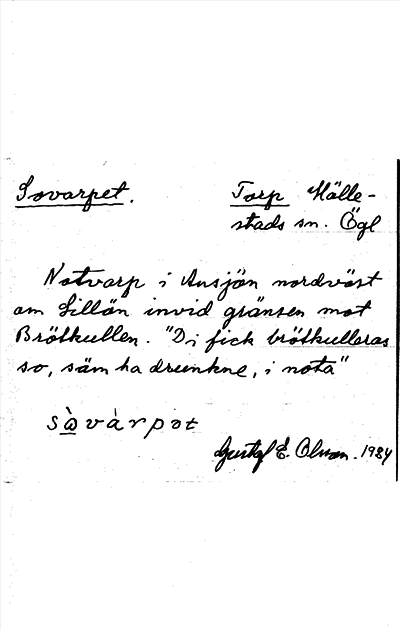 Sovarpet. Torp Hälle-
stads sn. Ögl
Notvarp i Ansjön nordväst
om Lillån invid gränsen mot
Brötkullen. "Di fick brötkulleras
so, säm ha drunkne, i nota"
sò̲vàrpət
Gustaf E. Olsson. 1984